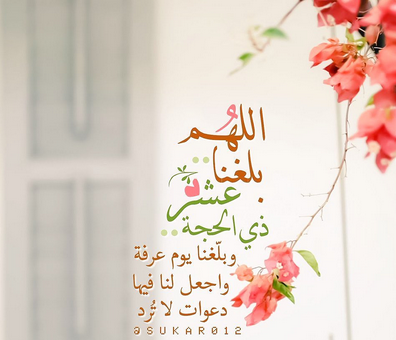 اللهم
بلغنا..
عشر
ذي الحجة..
وبلّغنا يوم عرفة
واجعل لنا فيها
دعوات لا تُرد
@SUKAR012